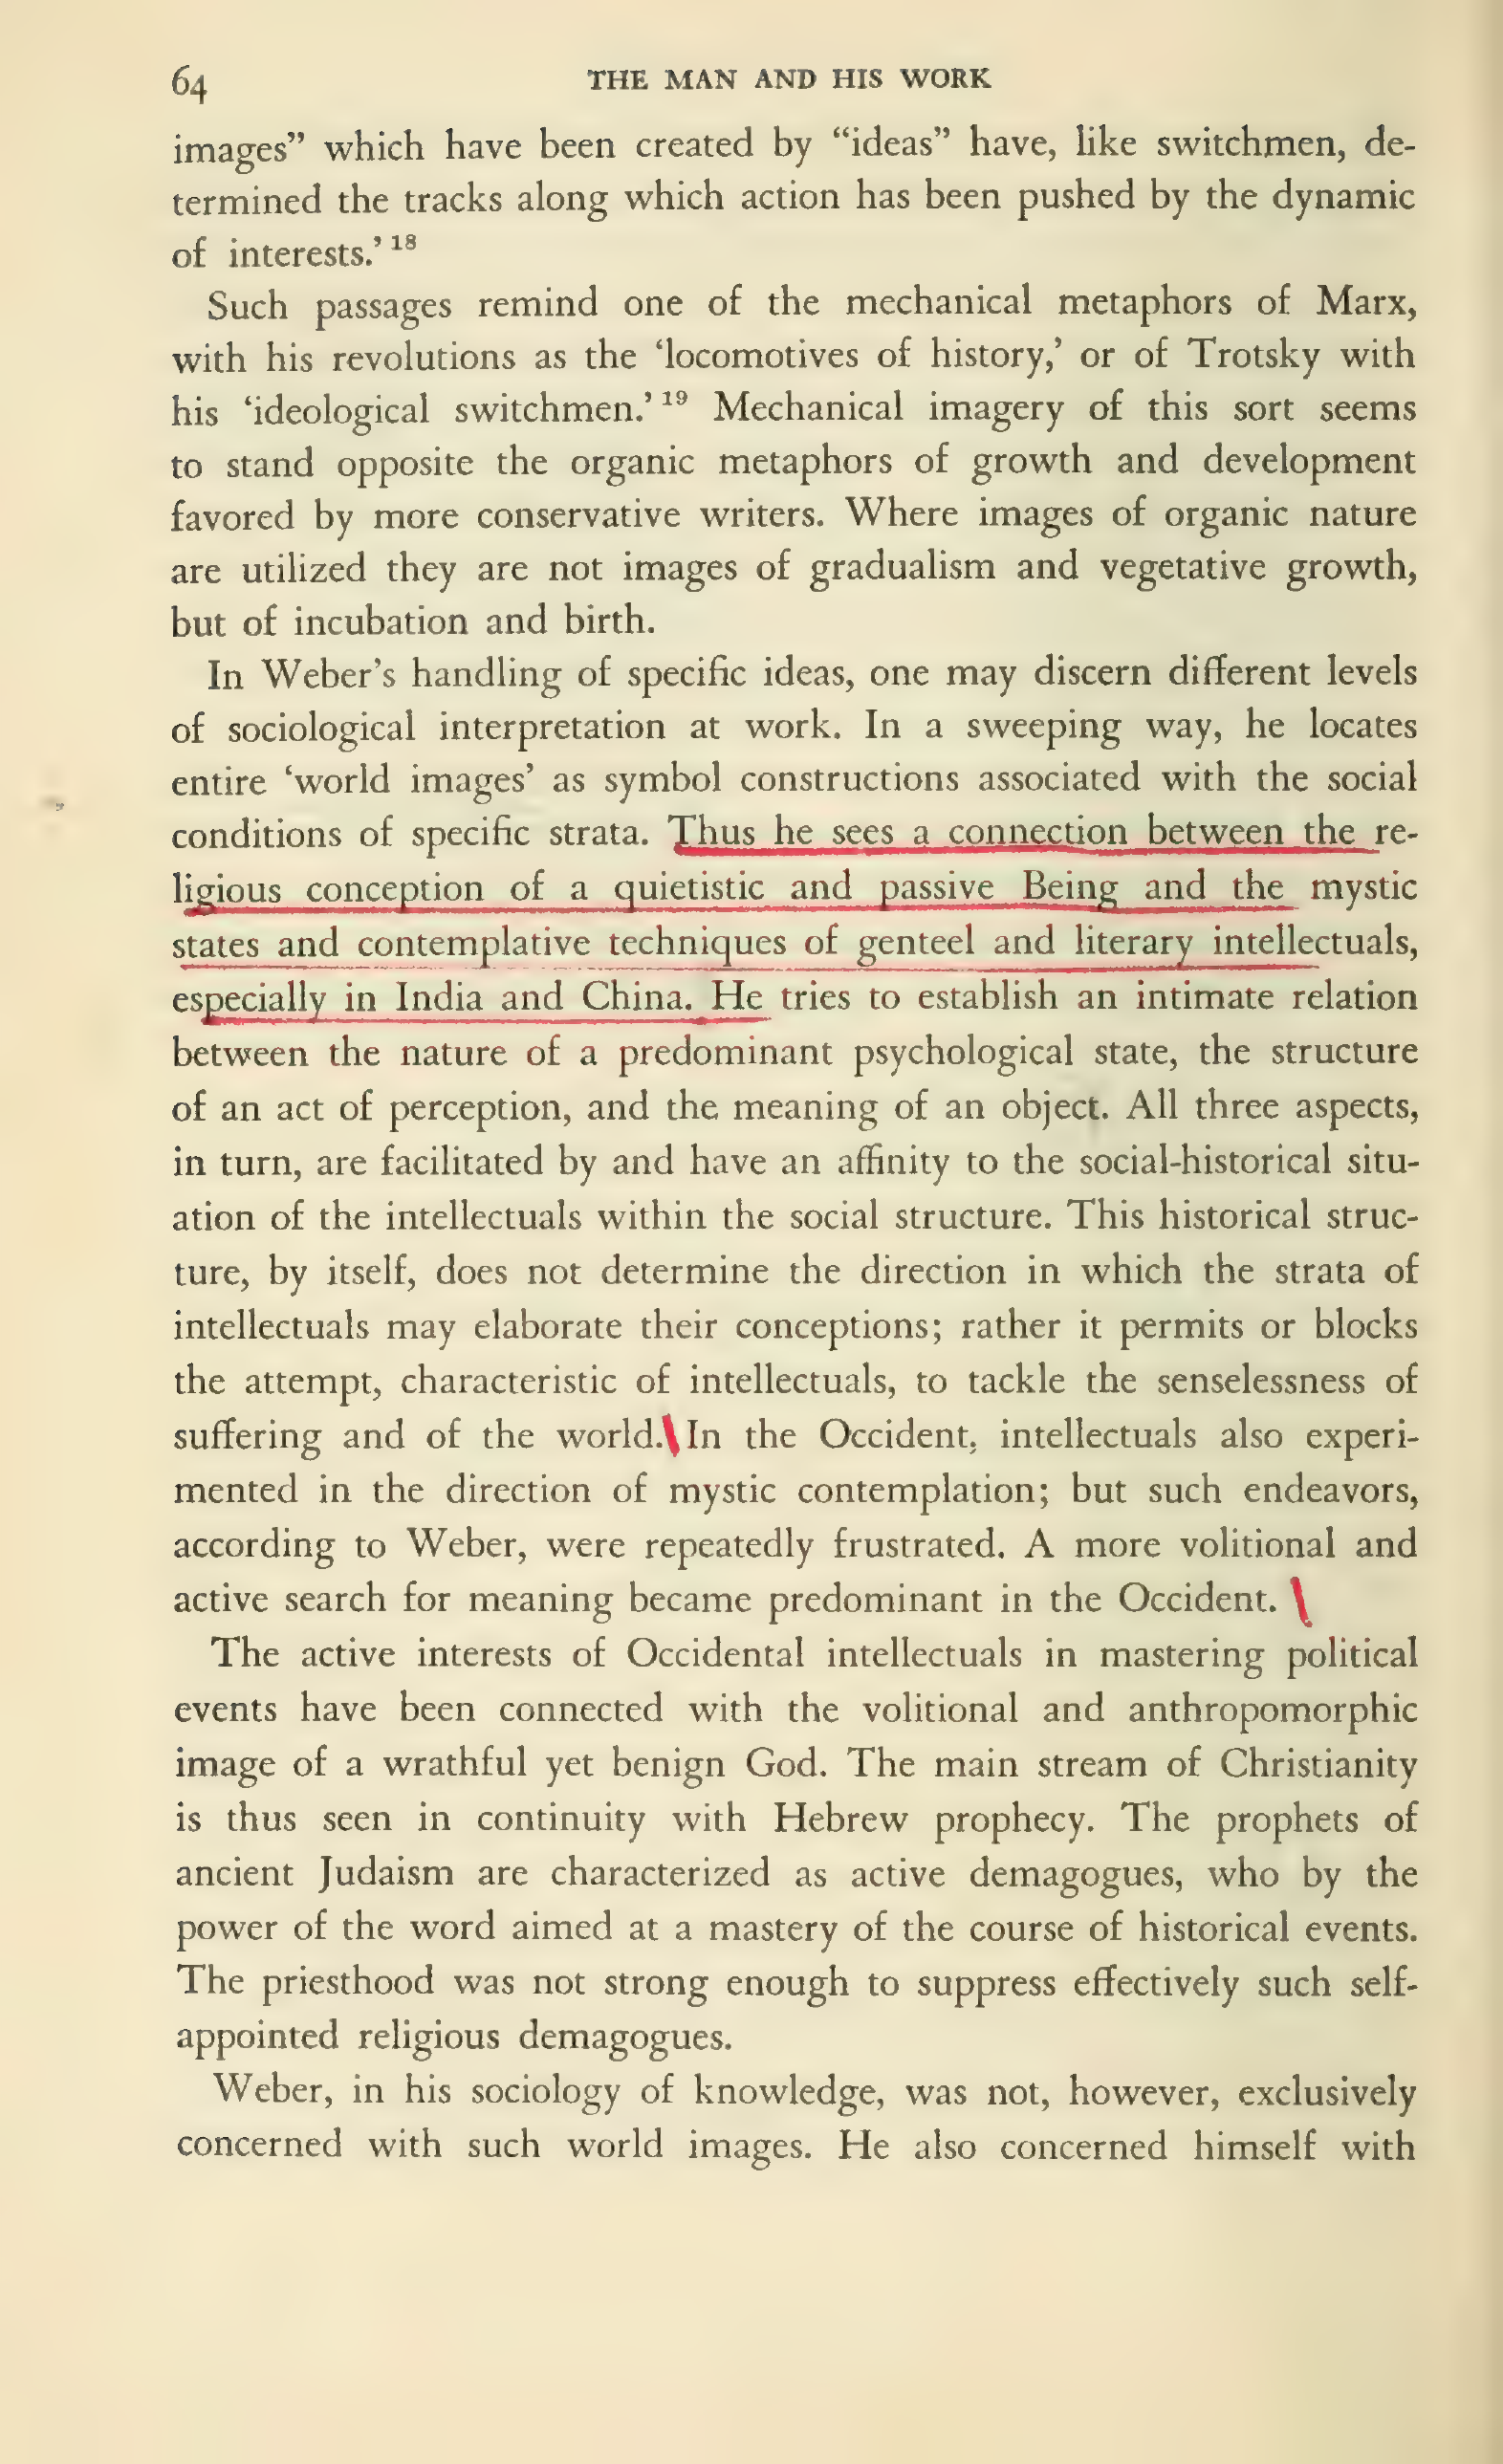 64 THE MAN AND HIS WORK
images” which have been created by “ideas” have, like switchmen, de-
termined the tracks along which action has been pushed by the dynamic
of interests.’ 18
Such passages remind one of the mechanical metaphors of Marx,
with his revolutions as the ‘locomotives of history,’ or of Trotsky with
his ‘ideological switchmen.’ 19 Mechanical imagery of this sort seems
to stand opposite the organic metaphors of growth and development
favored by more conservative writers. Where images of organic nature
are utilized they are not images of gradualism and vegetative growth,
but of incubation and birth.
In Weber’s handling of specific ideas, one may discern different levels
of sociological interpretation at work. In a sweeping way, he locates
entire ‘world images’ as symbol constructions associated with the social
conditions of specific strata. Thus he sees a connection between the re-
ligious conception of a quietistic and passive Being and the mystic
states and contemplative techniques of genteel and literary intellectuals,
especially in India and China. He tries to establish an intimate relation
between the nature of a predominant psychological state, the structure
of an act of perception, and the meaning of an object. All three aspects,
in turn, are facilitated by and have an affinity to the social-historical situ-
ation of the intellectuals within the social structure. This historical struc-
ture, by itself, does not determine the direction in which the strata of
intellectuals may elaborate their conceptions; rather it permits or blocks
the attempt, characteristic of intellectuals, to tackle the senselessness of
suffering and of the world. In the Occident, intellectuals also experi-
mented in the direction of mystic contemplation; but such endeavors,
according to Weber, were repeatedly frustrated. A more volitional and
active search for meaning became predominant in the Occident.
The active interests of Occidental intellectuals in mastering political
events have been connected with the volitional and anthropomorphic
image of a wrathful yet benign God. The main stream of Christianity
is thus seen in continuity with Hebrew prophecy. The prophets of
ancient Judaism are characterized as active demagogues, who by the
power of the word aimed at a mastery of the course of historical events.
The priesthood was not strong enough to suppress effectively such self-
appointed religious demagogues.
Weber, in his sociology of knowledge, was not, however, exclusively
concerned with such world images. He also concerned himself with